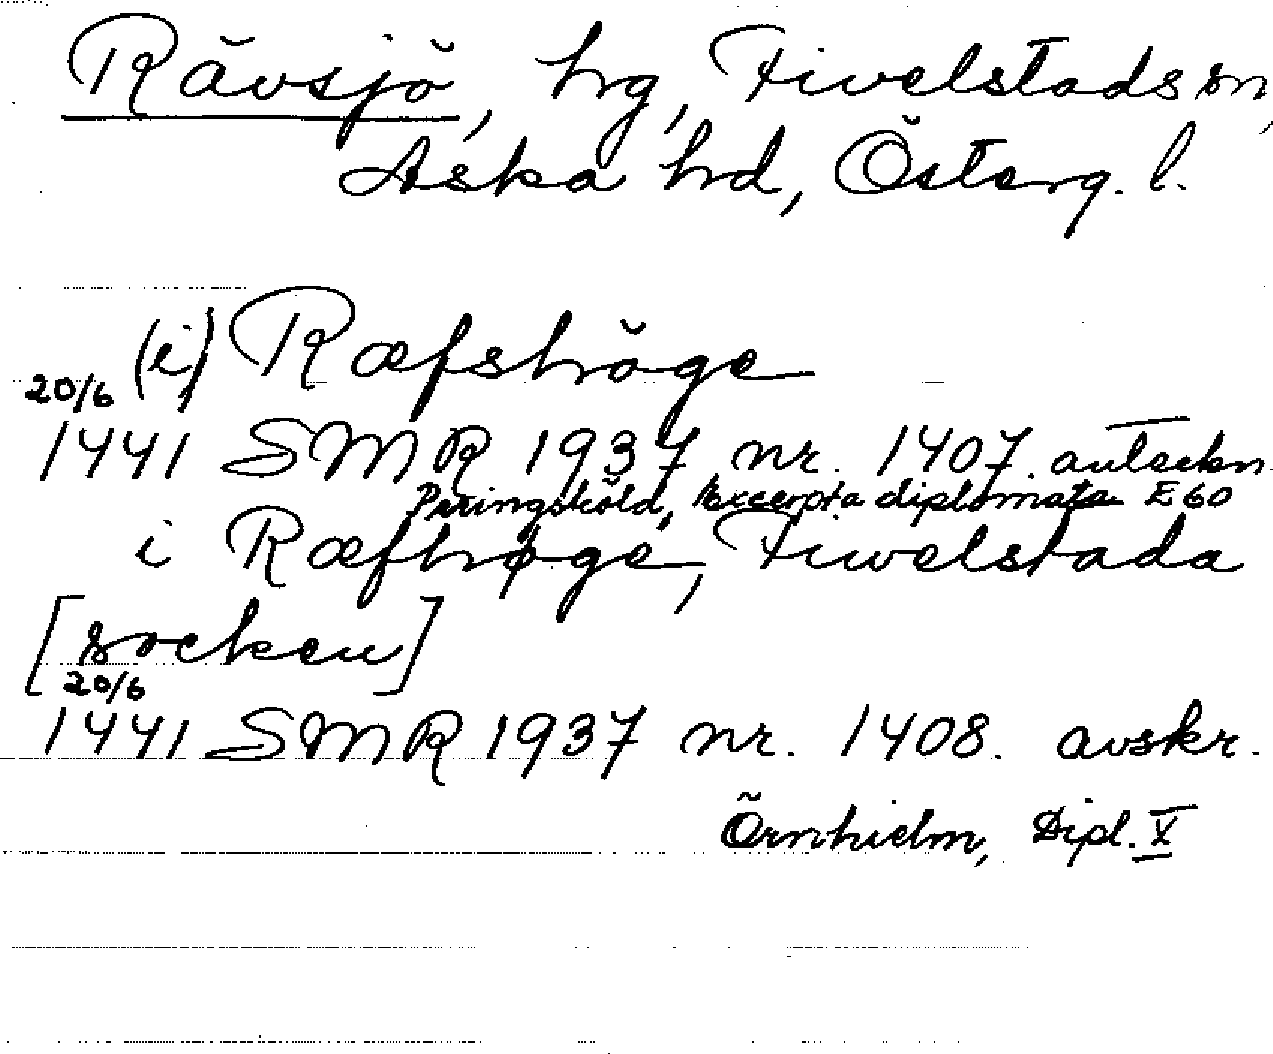 Rävsjö, hg, Fivelstads sn,
Aska hd, Österg. l.
(i) Ræfshöge
20/6
1441 SMR 1937 nr. 1407. anteckn.
Peringsköld, Excerpta diplomata E 60
i Ræfhøge, Fiwelstada
[socken]
20/6
1441 SMR 1937 nr. 1408. avskr.
Örnhielm, Dipl. X